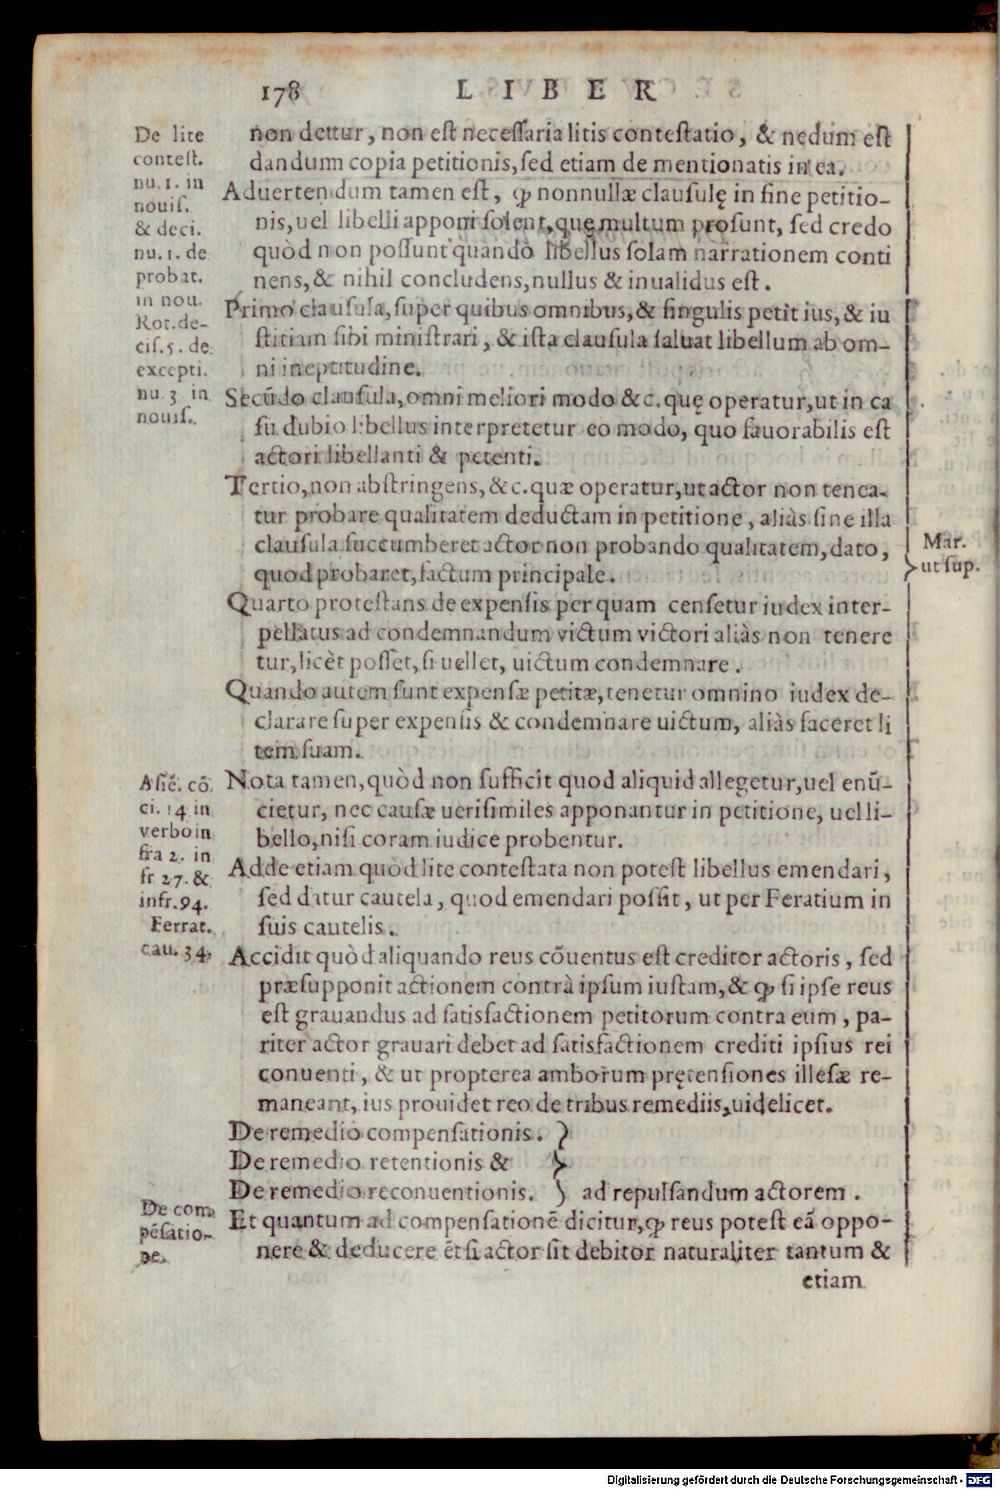 178 LIBER
De lite
contest.
nu. 1. in
nouis.
& deci.
nu. 1. de
probat.
in nou.
Rot. de-
cis. 5. de
excepti.
nu 3 in
nouis.
non dettur, non est necessaria litis contestatio, & nedum est
dandum copia petitionis, sed etiam de mentionatis in ea.
Aduertendum tamen est, ꝙ nonnullæ clausulę in fine petitio-
nis, uel libelli apponi solent, quę multum prosunt, sed credo
quòd non possunt quandò libellus solam narrationem conti
nens, & nihil concludens, nullus & inualidus est.
Primo clausula, super quibus omnibus, & singulis petit ius, & iu
stitiam sibi ministrari, & ista clausula saluat libellum ab om-
ni ineptitudine.
Secūdo clausula, omni meliori modo &c. quę operatur, ut in ca
su dubio libellus interpretetur eo modo, quo fauorabilis est
actori libellanti & petenti.
Tertio, non abstringens, &c. quæ operatur, ut actor non tenea-
tur probare qualitatem deductam in petitione, aliàs sine illa
clausula succumberet actor non probando qualitatem, dato,
quod probaret, factum principale.
Mar.
ut sup.
Quarto protestans de expensis per quam censetur iudex inter-
pellatus ad condemnandum victum victori aliàs non tenere
tur, licèt posset, si uellet, uictum condemnare.
Quando autem sunt expensæ petitæ, tenetur omnino iudex de-
clarare super expensis & condemnare uictum, aliàs faceret li
tem suam.
Nota tamen, quòd non sufficit quod aliquid allegetur, uel enū-
cietur, nec causæ uerisimiles apponantur in petitione, uel li-
bello, nisi coram iudice probentur.
Adde etiam quòd lite contestata non potest libellus emendari,
sed datur cautela, quod emendari possit, ut per Feratium in
suis cautelis.
Asiē. cō
ci. 14 in
verbo in
fra 2. in
fr 27. &
infr. 94.
Ferrat.
cau. 34.
Accidit quòd aliquando reus cōuentus est creditor actoris, sed
præsupponit actionem contrà ipsum iustam, & ꝙ si ipse reus
est grauandus ad satisfactionem petitorum contra eum, pa-
riter actor grauari debet ad satisfactionem crediti ipsius rei
conuenti, & ut propterea amborum prętensiones illesæ re-
maneant, ius prouidet reo de tribus remediis, uidelicet.
De remedio compensationis. }
De remedio retentionis & }
De remedio reconuentionis. } ad repulsandum actorem.
De com
pēsatio-
ne.
Et quantum ad compensationē dicitur, ꝙ reus potest eā oppo-
nere & deducere ēt si actor sit debitor naturaliter tantum &
etiam
Digitalisierung gefördert durch die Deutsche Forschungsgemeinschaft - DFG